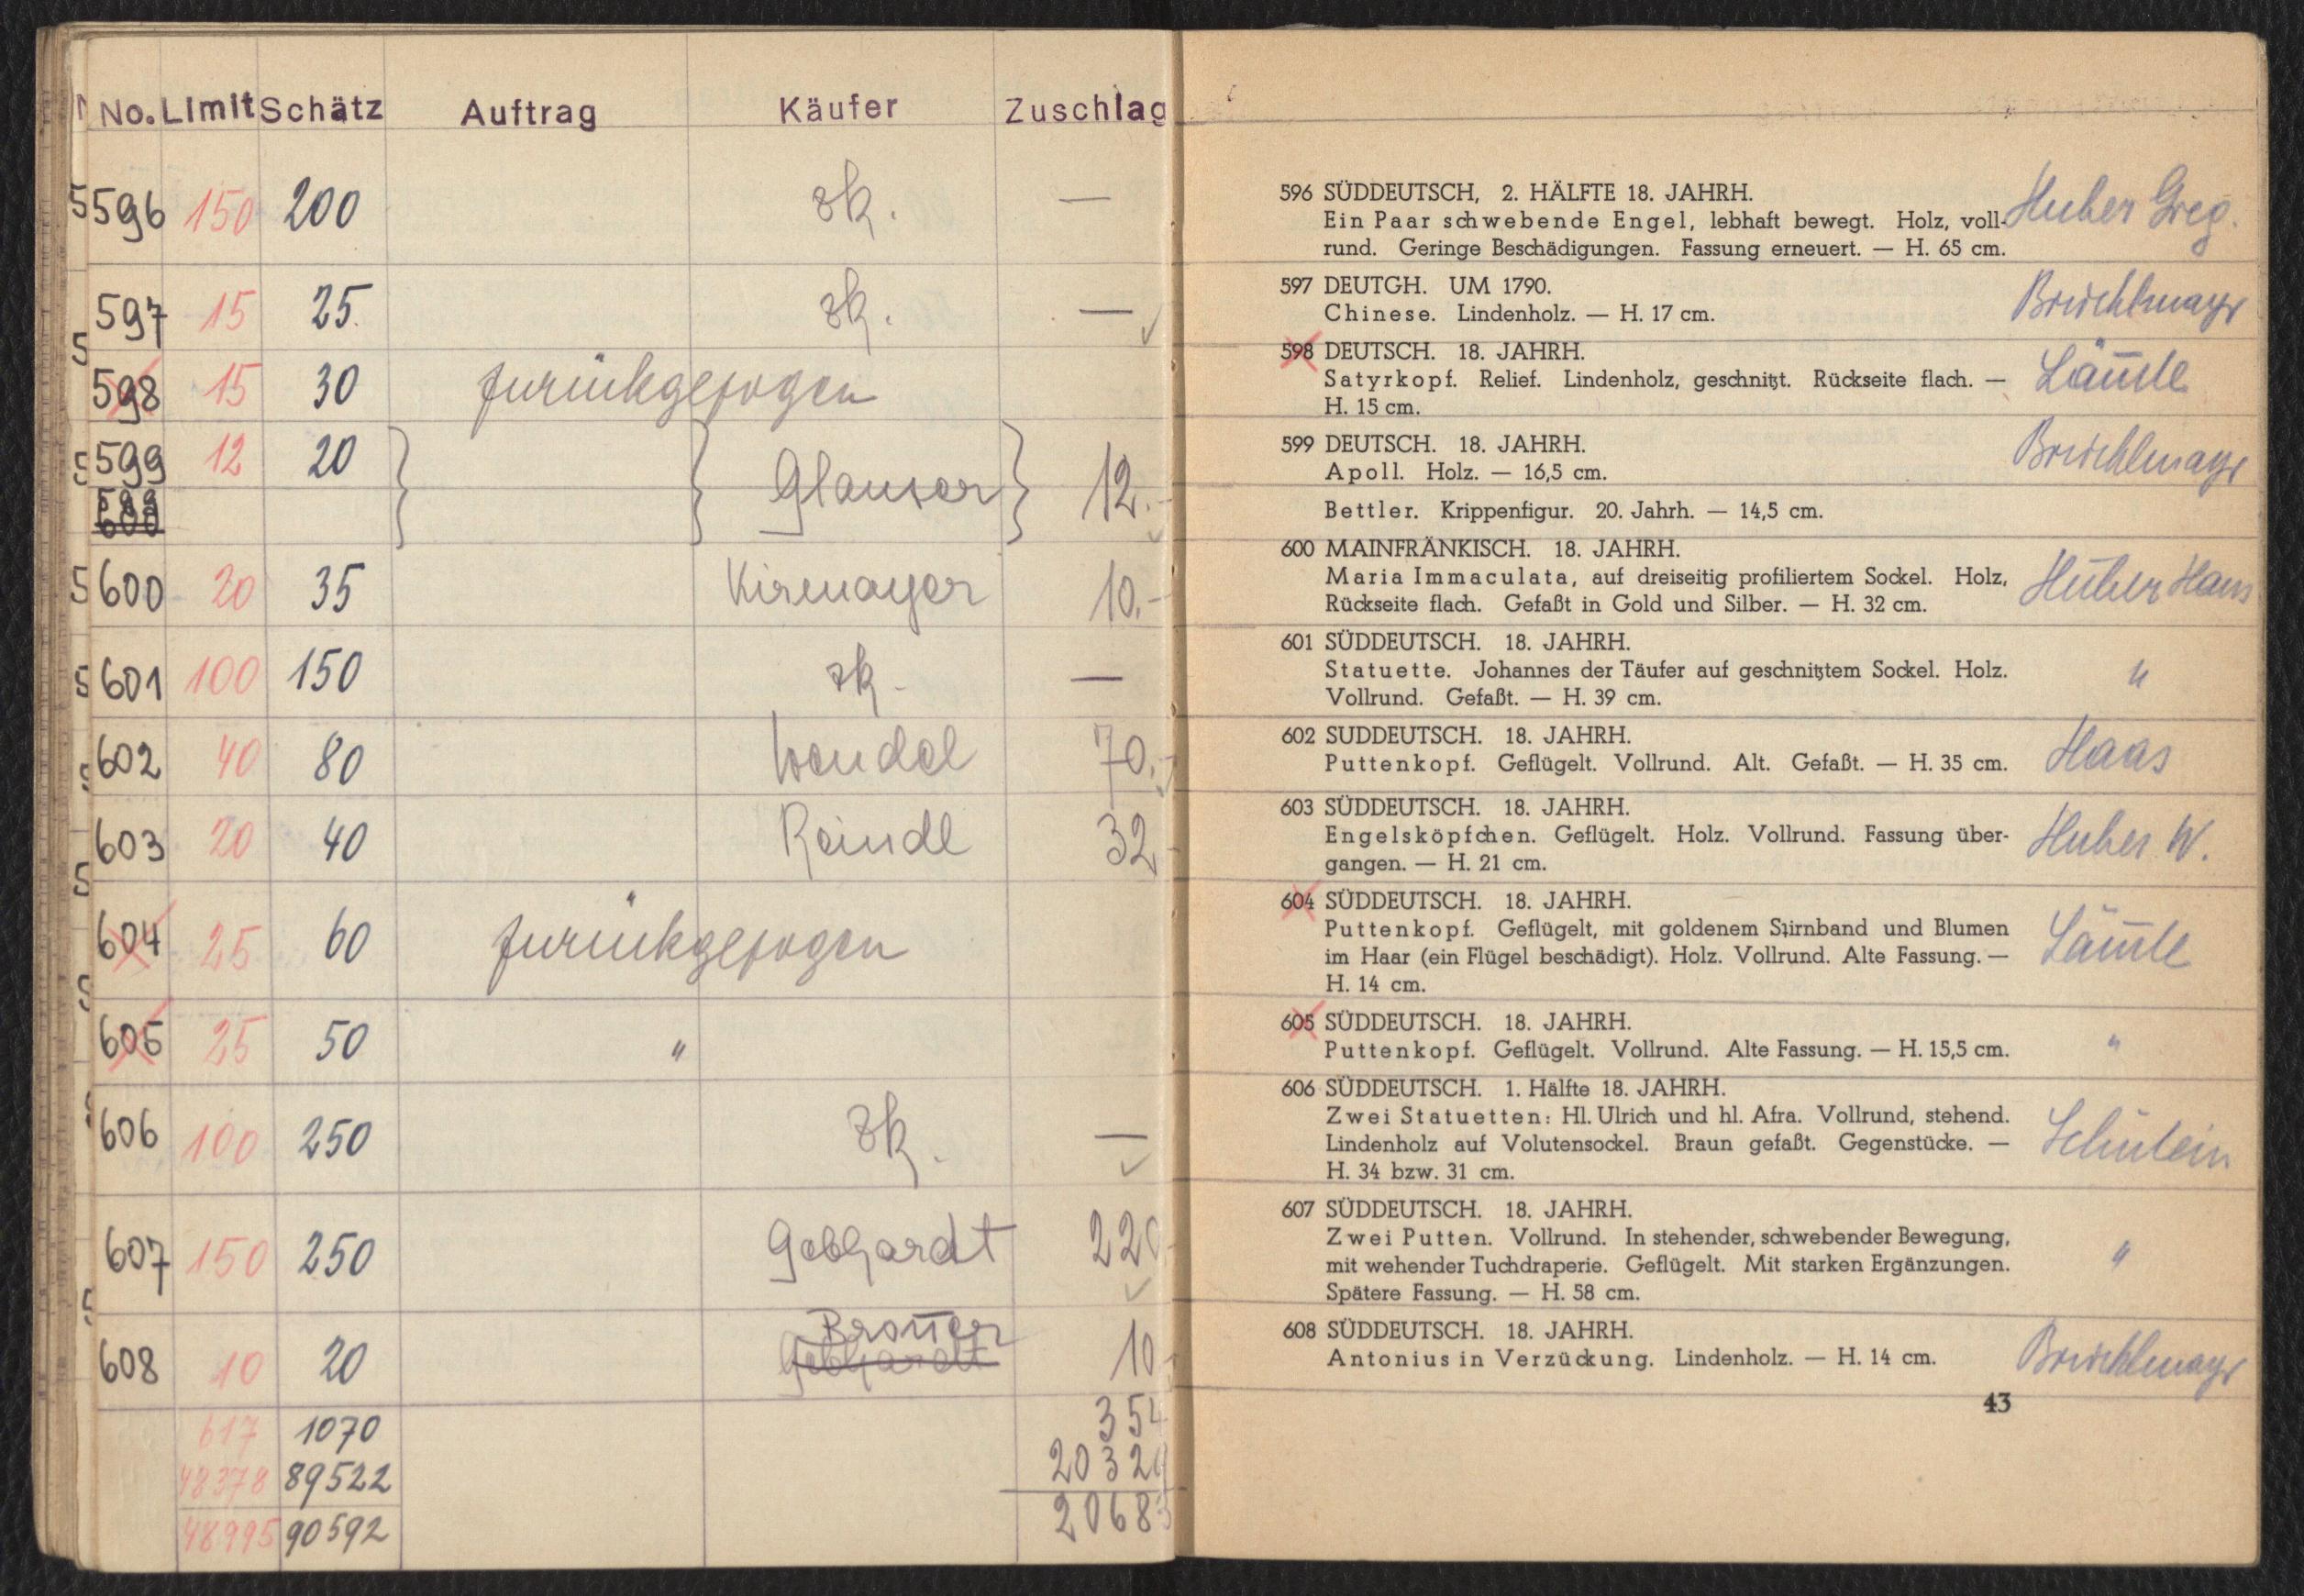 No. Limit Schätz Auftrag Käufer Zuschlag
596 150 200 zk. —
597 15 25. zk. — ✓
598 15 30 zurückgezogen
599 12 20 Glauser 12.-
599
600
600 20 35 Kirmayer 10.-
601 100 150 zk. —
602 40 80 Wendel 70.-
603 20 40 Reindl 32
604 25 60 zurückgezogen
605 25 50 "
606 100 250 zk. —
607 150 250 Gebhardt 220
Broñer
608 10 20 Gebhardt 10
617 1070 354
48378 89522 2032
48995 90592 2068
596 SÜDDEUTSCH, 2. HÄLFTE 18. JAHRH. Huber Greg.
Ein Paar schwebende Engel, lebhaft bewegt. Holz, voll-
rund. Geringe Beschädigungen. Fassung erneuert. — H. 65 cm.
597 DEUTGH. UM 1790.
Chinese. Lindenholz. — H. 17 cm.
598 DEUTSCH. 18. JAHRH.
Satyrkopf. Relief. Lindenholz, geschnitzt. Rückseite flach. —
H. 15 cm.
599 DEUTSCH. 18. JAHRH.
Apoll. Holz. — 16,5 cm.
Bettler. Krippenfigur. 20. Jahrh. — 14,5 cm.
600 MAINFRÄNKISCH. 18. JAHRH.
Maria Immaculata, auf dreiseitig profiliertem Sockel. Holz, Huber Hans
Rückseite flach. Gefaßt in Gold und Silber. — H. 32 cm.
601 SÜDDEUTSCH. 18. JAHRH.
Statuette. Johannes der Täufer auf geschnitztem Sockel. Holz. "
Vollrund. Gefaßt. — H. 39 cm.
602 SUDDEUTSCH. 18. JAHRH.
Puttenkopf. Geflügelt. Vollrund. Alt. Gefaßt. — H. 35 cm. Haas
603 SÜDDEUTSCH. 18. JAHRH.
Engelsköpfchen. Geflügelt. Holz. Vollrund. Fassung über- Huber W.
gangen. — H. 21 cm.
604 SÜDDEUTSCH. 18. JAHRH.
Puttenkopf. Geflügelt, mit goldenem Stirnband und Blumen
im Haar (ein Flügel beschädigt). Holz. Vollrund. Alte Fassung. —
H. 14 cm.
605 SÜDDEUTSCH. 18. JAHRH.
Puttenkopf. Geflügelt. Vollrund. Alte Fassung. — H. 15,5 cm. "
606 SÜDDEUTSCH. 1. Hälfte 18. JAHRH.
Zwei Statuetten: Hl. Ulrich und hl. Afra. Vollrund, stehend.
Lindenholz auf Volutensockel. Braun gefaßt. Gegenstücke. — Schülein
H. 34 bzw. 31 cm.
607 SÜDDEUTSCH. 18. JAHRH.
Zwei Putten. Vollrund. In stehender, schwebender Bewegung, "
mit wehender Tuchdraperie. Geflügelt. Mit starken Ergänzungen.
Spätere Fassung. — H. 58 cm.
608 SÜDDEUTSCH. 18. JAHRH.
Antonius in Verzückung. Lindenholz. — H. 14 cm.
43